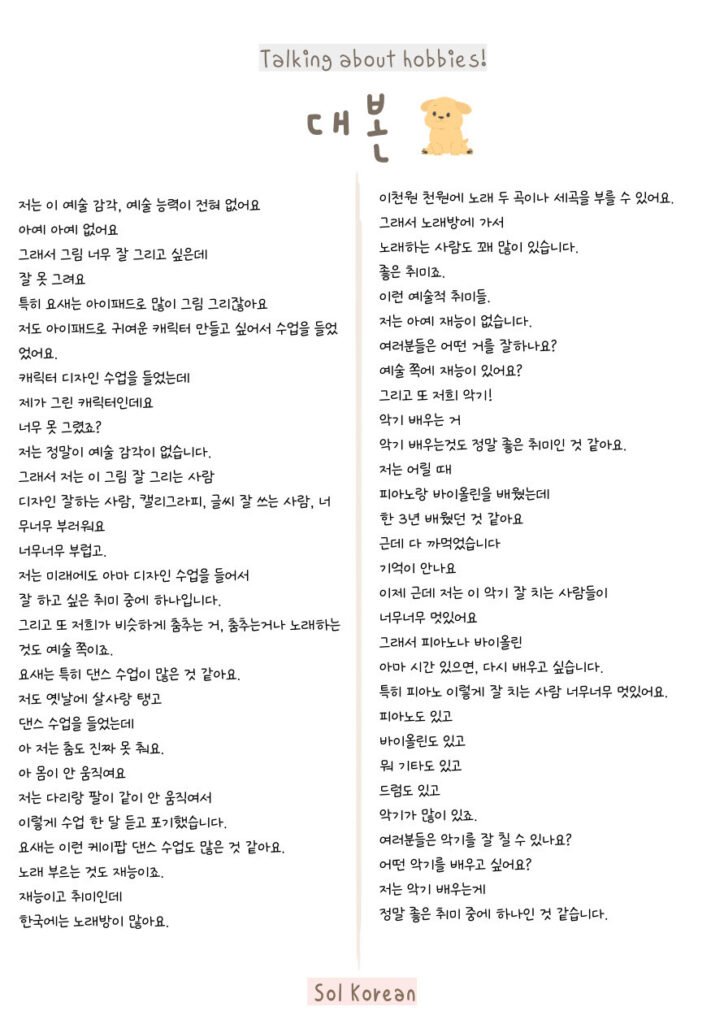 Talking about hobbies!
대본
저는 이 예술 감각, 예술 능력이 전혀 없어요
아예 아예 없어요
그래서 그림 너무 잘 그리고 싶은데
잘 못 그려요
특히 요새는 아이패드로 많이 그림 그리잖아요
저도 아이패드로 귀여운 캐릭터 만들고 싶어서 수업을 들었
었어요.
캐릭터 디자인 수업을 들었는데
제가 그린 캐릭터인데요
너무 못 그렸죠?
저는 정말이 예술 감각이 없습니다.
그래서 저는 이 그림 잘 그리는 사람
디자인 잘하는 사람, 캘리그라피, 글씨 잘 쓰는 사람, 너
무너무 부러워요
너무너무 부럽고.
저는 미래에도 아마 디자인 수업을 들어서
잘 하고 싶은 취미 중에 하나입니다.
그리고 또 저희가 비슷하게 춤추는 거, 춤추는거나 노래하는
것도 예술 쪽이죠.
요새는 특히 댄스 수업이 많은 것 같아요.
저도 옛날에 살사랑 탱고
댄스 수업을 들었는데
아 저는 춤도 진짜 못 춰요.
아 몸이 안 움직여요
저는 다리랑 팔이 같이 안 움직여서
이렇게 수업 한 달 듣고 포기했습니다.
요새는 이런 케이팝 댄스 수업도 많은 것 같아요.
노래 부르는 것도 재능이죠.
재능이고 취미인데
한국에는 노래방이 많아요.
이천원 천원에 노래 두 곡이나 세곡을 부를 수 있어요.
그래서 노래방에 가서
노래하는 사람도 꽤 많이 있습니다.
좋은 취미죠.
이런 예술적 취미들.
저는 아예 재능이 없습니다.
여러분들은 어떤 거를 잘하나요?
예술 쪽에 재능이 있어요?
그리고 또 저희 악기!
악기 배우는 거
악기 배우는것도 정말 좋은 취미인 것 같아요.
저는 어릴 때
피아노랑 바이올린을 배웠는데
한 3년 배웠던 것 같아요
근데 다 까먹었습니다
기억이 안나요
이제 근데 저는 이 악기 잘 치는 사람들이
너무너무 멋있어요
그래서 피아노나 바이올린
아마 시간 있으면, 다시 배우고 싶습니다.
특히 피아노 이렇게 잘 치는 사람 너무너무 멋있어요.
피아노도 있고
바이올린도 있고
뭐 기타도 있고
드럼도 있고
악기가 많이 있죠.
여러분들은 악기를 잘 칠 수 있나요?
어떤 악기를 배우고 싶어요?
저는 악기 배우는게
정말 좋은 취미 중에 하나인 것 같습니다.
Sol Korean